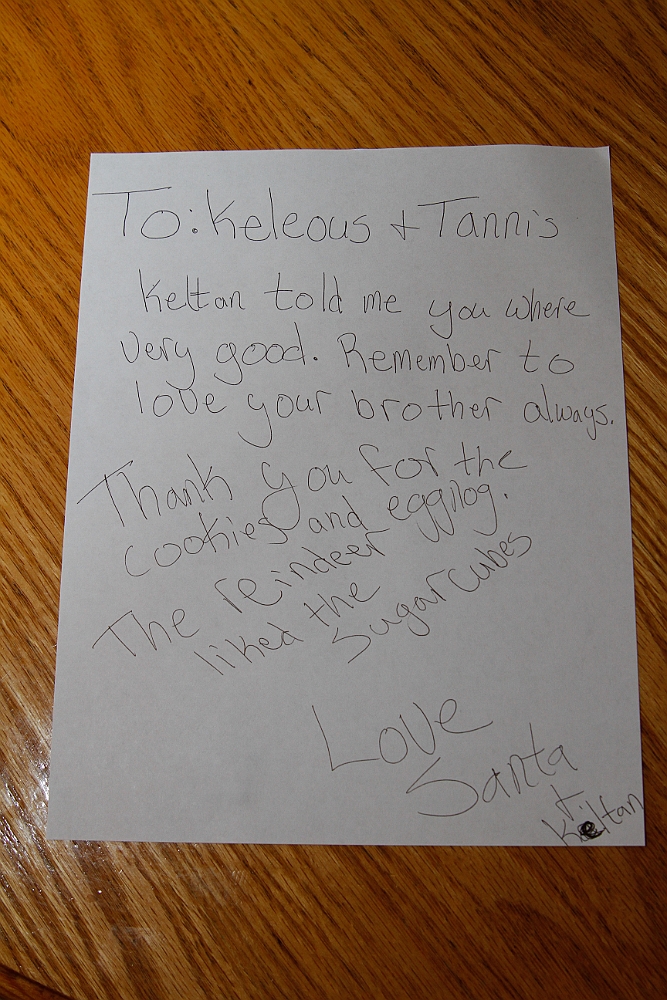 To: Keleous + Tannis
Keltan told me you where
very good. Remember to
love your brother always.
Thank you for the
cookies and eggnog.
The reindeer
liked the
sugarcubes
Love
Santa
+
Keltan